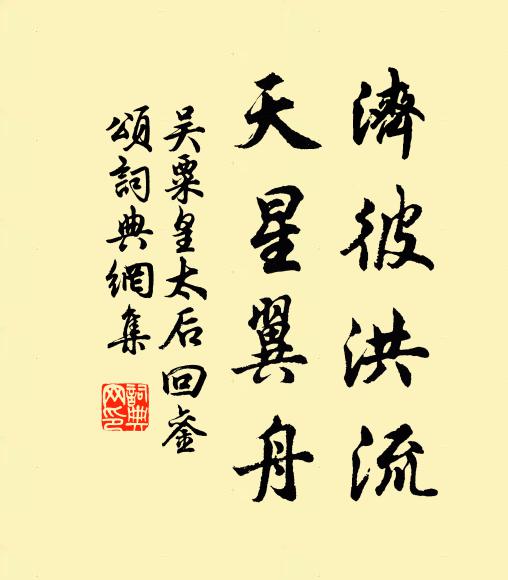 濟彼洪流
天星翼舟
吴粟皇太后回鑾
頌詞典網集
詞典
网印